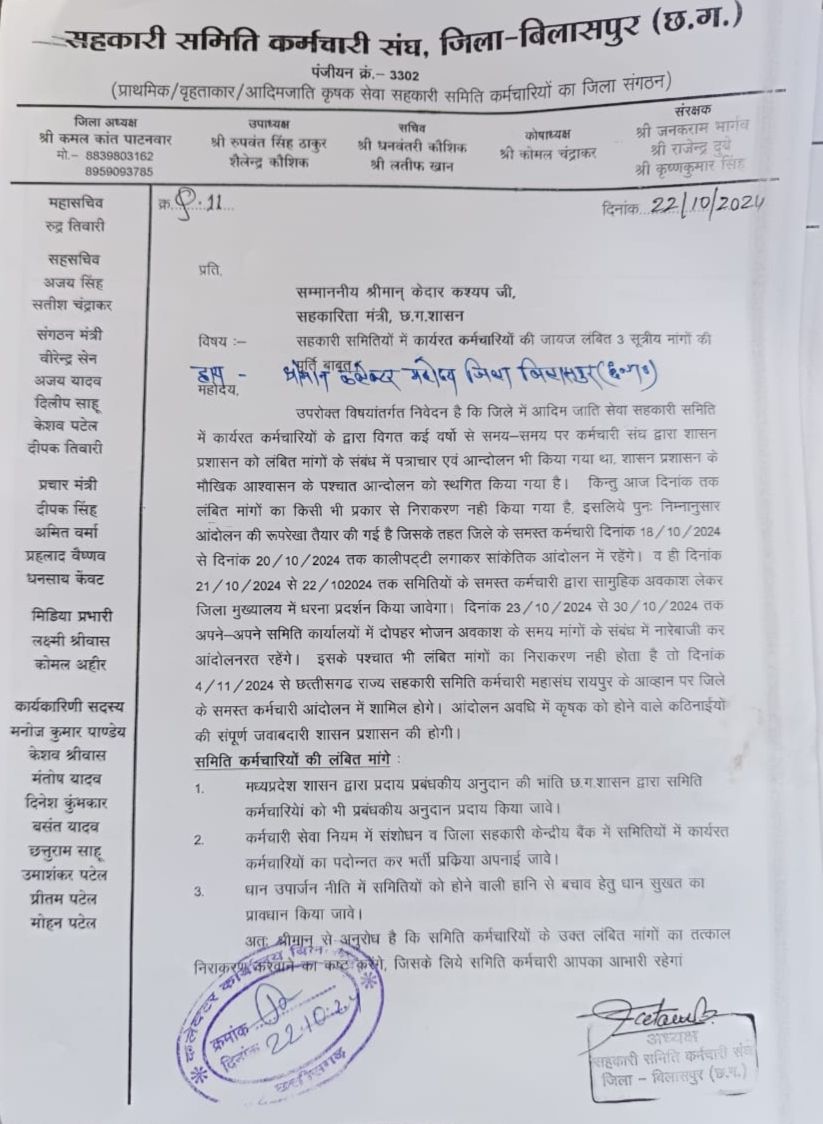 सहकारी समिति कर्मचारी संघ, जिला-बिलासपुर (छ.ग.)
पंजीयन क्रं.– 3302
(प्राथमिक/वृहताकार/आदिमजाति कृषक सेवा सहकारी समिति कर्मचारियों का जिला संगठन)
जिला अध्यक्ष
श्री कमल कांत पाटनवार
मो.– 8839803162
8959093785
उपाध्यक्ष
श्री रुपवंत सिंह ठाकुर
शैलेन्द्र कौशिक
सचिव
श्री धनवंतरी कौशिक
श्री लतीफ खान
कोषाध्यक्ष
श्री कोमल चंद्राकर
संरक्षक
श्री जनकराम भार्गव
श्री राजेन्द्र दुबे
श्री कृष्णकुमार सिंह
महासचिव
रुद्र तिवारी
सहसचिव
अजय सिंह
सतीश चंद्राकर
संगठन मंत्री
वीरेन्द्र सेन
अजय यादव
दिलीप साहू
केशव पटेल
दीपक तिवारी
प्रचार मंत्री
दीपक सिंह
अमित वर्मा
प्रहलाद वैष्णव
धनसाय केंवट
मिडिया प्रभारी
लक्ष्मी श्रीवास
कोमल अहीर
कार्यकारिणी सदस्य
मनोज कुमार पाण्डेय
केशव श्रीवास
मंतोष यादव
दिनेश कुंभकार
बसंत यादव
छत्तुराम साहू
उमाशंकर पटेल
प्रीतम पटेल
मोहन पटेल
क्र. 11
दिनांक 22/10/2024
प्रति,
सम्माननीय श्रीमान् केदार कश्यप जी,
सहकारिता मंत्री, छ.ग.शासन
विषय :– सहकारी समितियों में कार्यरत कर्मचारियों की जायज लंबित 3 सूत्रीय मांगों की
पूर्ति बाबत्
द्वारा - श्रीमान कलेक्टर महोदय जिला बिलासपुर (छ०ग०)
महोदय,
उपरोक्त विषयांतर्गत निवेदन है कि जिले में आदिम जाति सेवा सहकारी समिति
में कार्यरत कर्मचारियों के द्वारा विगत कई वर्षो से समय–समय पर कर्मचारी संघ द्वारा शासन
प्रशासन को लंबित मांगों के संबंध में पत्राचार एवं आन्दोलन भी किया गया था, शासन प्रशासन के
मौखिक आश्वासन के पश्चात आन्दोलन को स्थगित किया गया है। किन्तु आज दिनांक तक
लंबित मांगों का किसी भी प्रकार से निराकरण नही किया गया है, इसलिये पुनः निम्नानुसार
आंदोलन की रूपरेखा तैयार की गई है जिसके तहत जिले के समस्त कर्मचारी दिनांक 18/10/2024
से दिनांक 20/10/2024 तक कालीपट्टी लगाकर सांकेतिक आंदोलन में रहेंगे। व ही दिनांक
21/10/2024 से 22/102024 तक समितियों के समस्त कर्मचारी द्वारा सामुहिक अवकाश लेकर
जिला मुख्यालय में धरना प्रदर्शन किया जावेगा। दिनांक 23/10/2024 से 30/10/2024 तक
अपने–अपने समिति कार्यालयों में दोपहर भोजन अवकाश के समय मांगों के संबंध में नारेबाजी कर
आंदोलनरत रहेंगे। इसके पश्चात भी लंबित मांगों का निराकरण नही होता है तो दिनांक
4/11/2024 से छत्तीसगढ राज्य सहकारी समिति कर्मचारी महासंघ रायपुर के आव्हान पर जिले
के समस्त कर्मचारी आंदोलन में शामिल होगे। आंदोलन अवधि में कृषक को होने वाले कठिनाईयों
की संपूर्ण जवाबदारी शासन प्रशासन की होगी।
समिति कर्मचारियों की लंबित मांगे :
1. मध्यप्रदेश शासन द्वारा प्रदाय प्रबंधकीय अनुदान की भांति छ.ग.शासन द्वारा समिति
कर्मचारियेां को भी प्रबंधकीय अनुदान प्रदाय किया जावे।
2. कर्मचारी सेवा नियम में संशोधन व जिला सहकारी केन्द्रीय बैंक में समितियों में कार्यरत
कर्मचारियों का पदोन्नत कर भर्ती प्रकिया अपनाई जावे।
3. धान उपार्जन नीति में समितियों को होने वाली हानि से बचाव हेतु धान सुखत का
प्रावधान किया जावे।
अतः श्रीमान् से अनुरोध है कि समिति कर्मचारियों के उक्त लंबित मांगों का तत्काल
निराकरण करवाने का कष्ट करेंगे, जिसके लिये समिति कर्मचारी आपका आभारी रहेगां
कलेक्टर कार्यालय
क्रमांक
दिनांक 22.10.24
छत्तीसगढ़
अध्यक्ष
सहकारी समिति कर्मचारी संघ
जिला – बिलासपुर (छ.ग.)